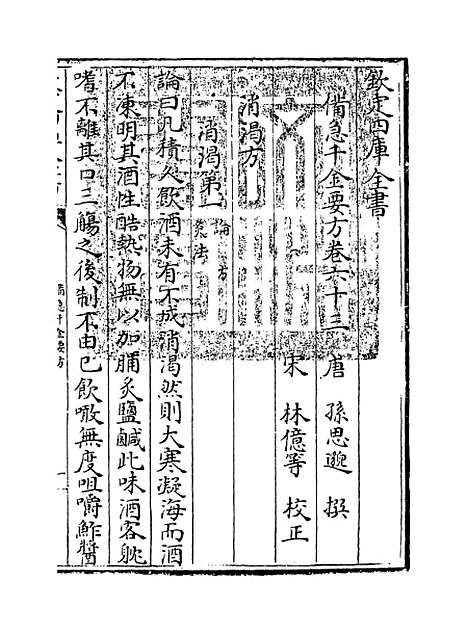 欽定四庫全書
備急千金要方卷六十三
唐 孫思邈 撰
宋 林億等 校正
消渴方
消渴第一 論 方 灸法
論曰凡積久飲酒未有不成消渴然則大寒凝海而酒
不凍明其酒性酷熱物無以加脯炙鹽鹹此味酒客躭
嗜不離其口三觴之後制不由己飲噉無度咀嚼鮓醬
備急千金要方